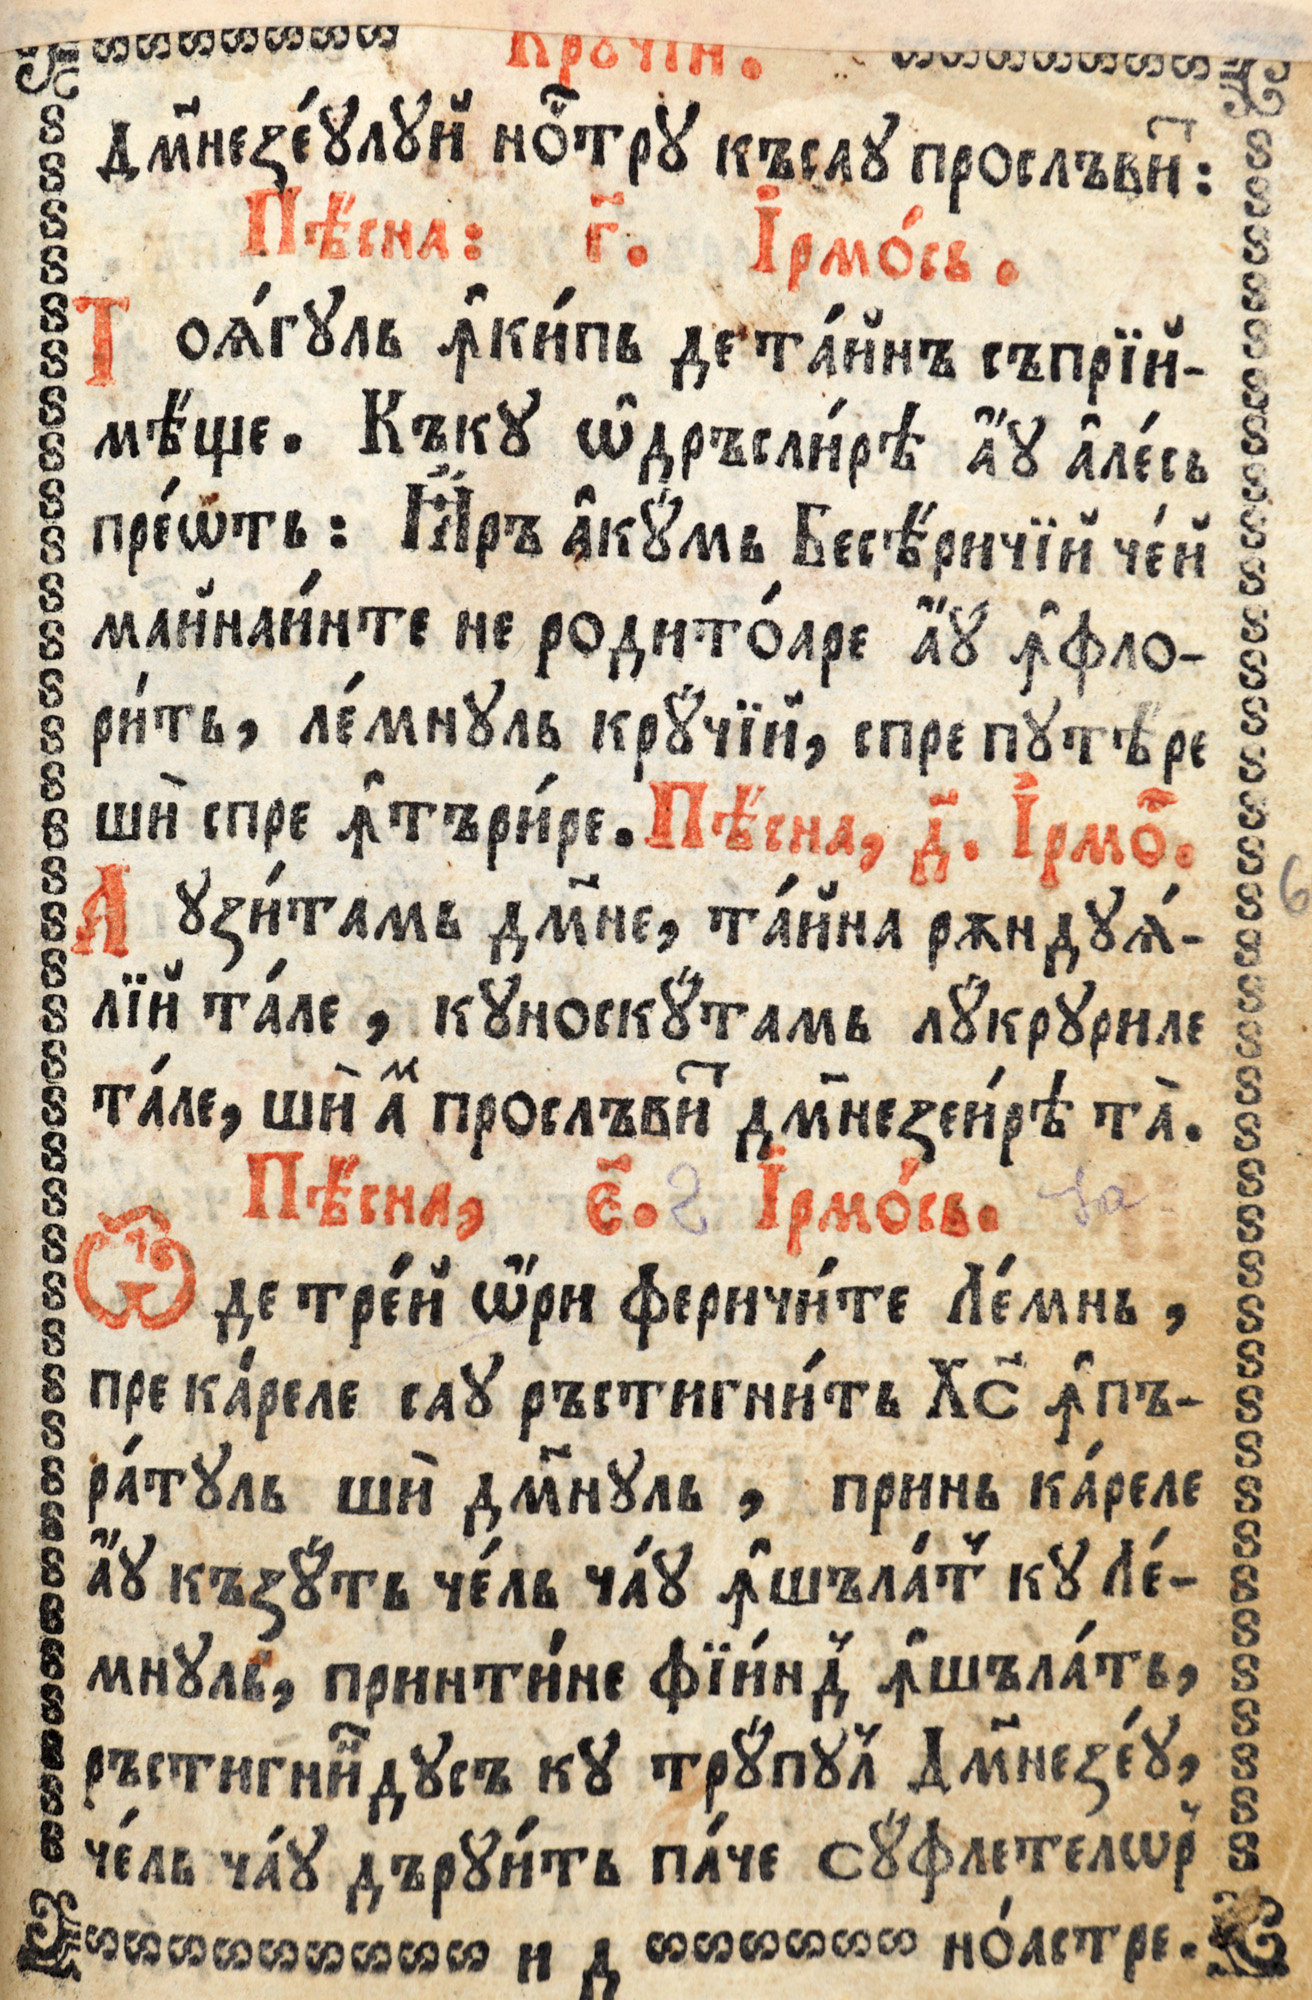 Крꙋ́чїй.
Дм҃незе́ꙋлꙋй но́трꙋ къслꙋ прослъви:
Пѣ́сна: г҃. Ірмо́сь.
Тоѧ́гꙋль ꙟки́пь де та́йнъ съпрїй-
мѣ́ще. Къкꙋ ѡ҆дръсли́рѣ а҆́ꙋ а҆ле́сь
пре́ѡть: Ꙗ҆ръ а҆кꙋ́мь Бесѣ́ричїй че́й
майнаи́нте не родито́аре а҆́ꙋ ꙟфло-
ри́ть, ле́мнꙋль крꙋ́чїй, спре пꙋтѣ́ре
шѝ спре ꙟтъри́ре. Пѣ́сна, д҃. Ірмо́.
Аꙋзи́тамь дм҃не, та́йна рѫндꙋѧ́-
лїй та́ле, кꙋноскꙋ́тамь лꙋ́крꙋриле
та́ле, шѝ а҆м прослъви дм҃незеи́рѣ та̀.
Пѣ́сна, є҃. Ірмо́сь.
Ѽ де тре́й ѡ҆́ри феричи́те Ле́мнь,
пре ка́реле саꙋ ръстигни́ть Хс҃ ꙟпъ-
ра́тꙋль шѝ дм҃нꙋль, принь ка́реле
а҆́ꙋ къзꙋ́ть че́ль ча́ꙋ ꙟшъла́т кꙋ Ле́-
мнꙋль, принти́не фїи́нд ꙟшъла́ть,
ръстигни́ндꙋсъ кꙋ трꙋ́пꙋл Дм҃незе́ꙋ,
че́ль ча́ꙋ дърꙋи́ть па́че сꙋ́флетелѡр
н д но́астре.